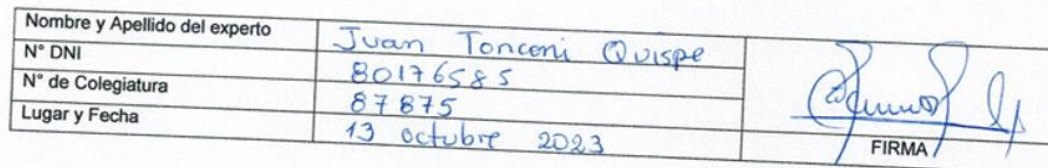 Nombre y Apellido del experto Juan Tonconi Quispe
N° DNI 80176585
N° de Colegiatura 87875
Lugar y Fecha 13 octubre 2023
FIRMA